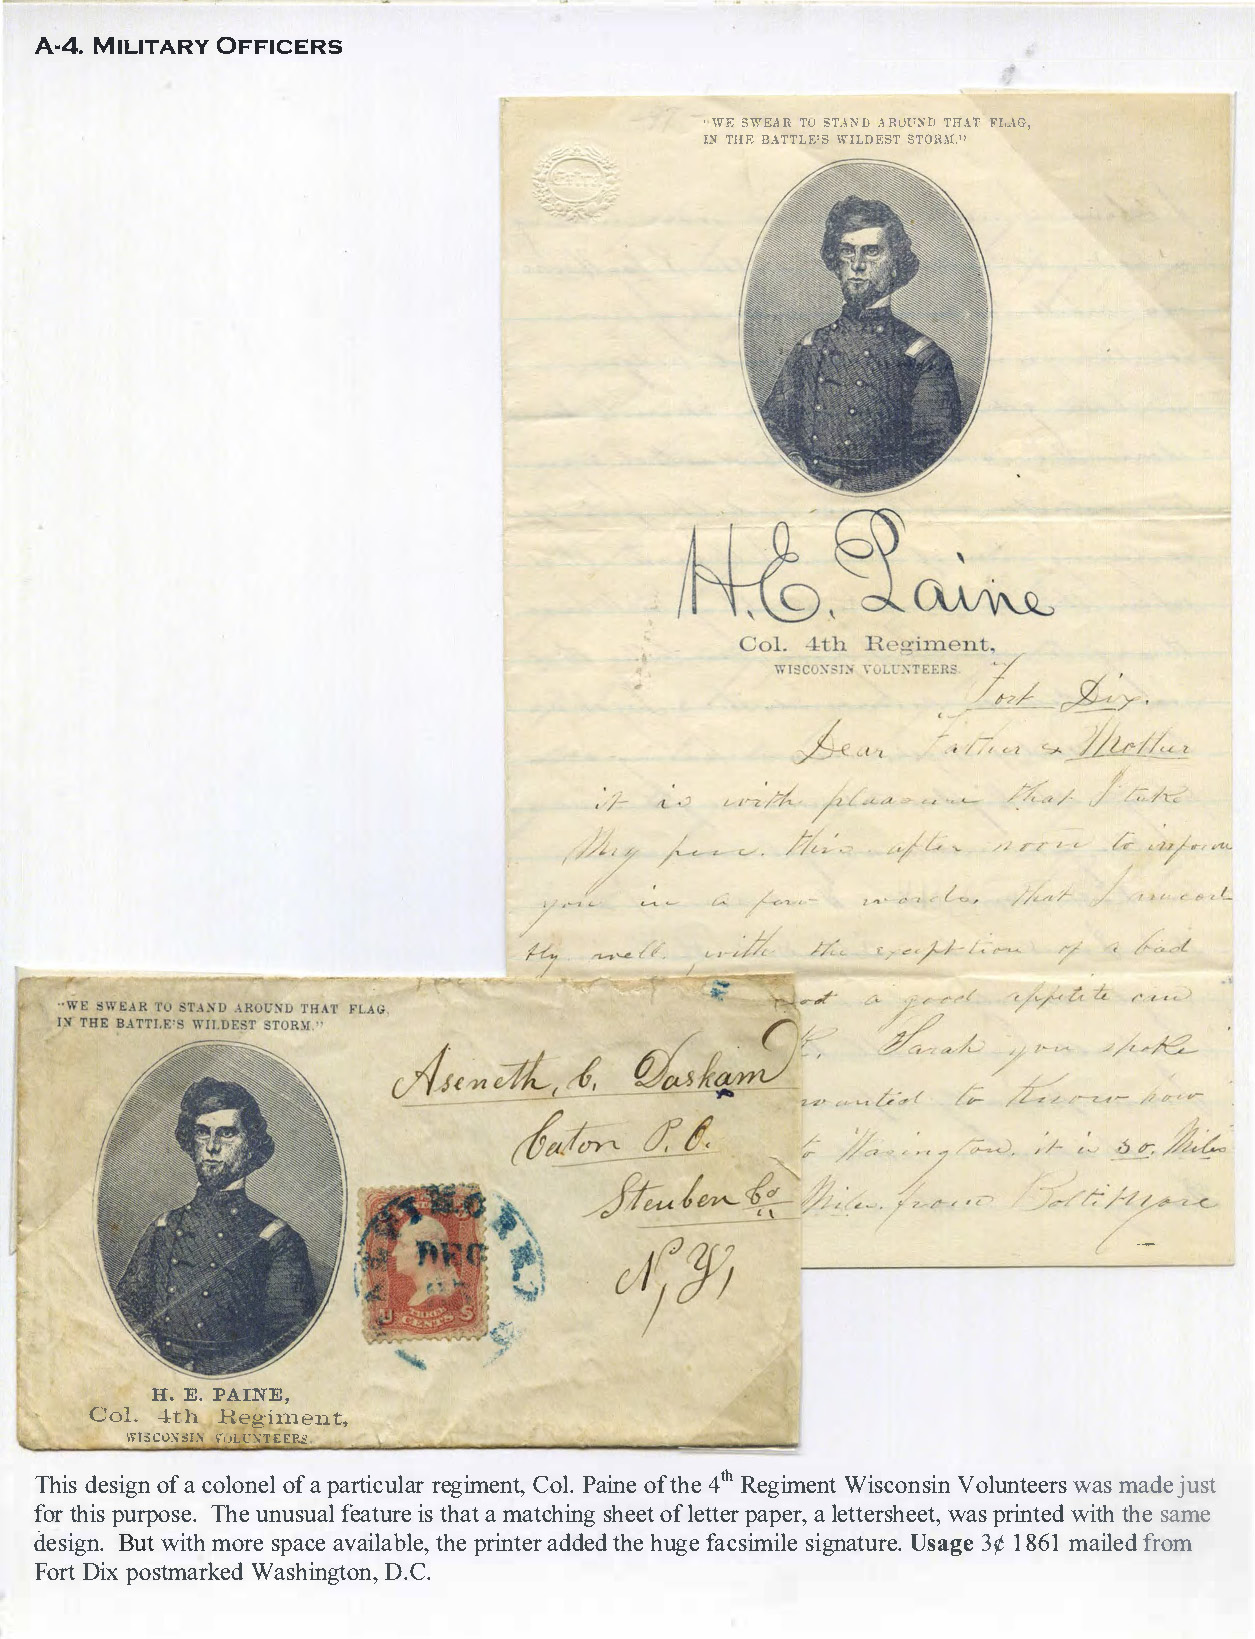 A-4. MILITARY OFFICERS
"WE SWEAR TO STAND AROUND THAT FLAG,
IN THE BATTLE'S WILDEST STORM."
H. E. Paine
Col. 4th Regiment,
WISCONSIN VOLUNTEERS.
Fort Dix.
Dear Father & Mother
it is with pleasure that I take
My pen this after noon to inform
you in a few words. that I am
well with the exception of a bad
a good appetite
Sarah you spoke
wanted to Know how
to Wasington. it is 30. Miles
Miles from Baltimore
"WE SWEAR TO STAND AROUND THAT FLAG,
IN THE BATTLE'S WILDEST STORM."
Aseneth, C. Daskam
Caton P. O.
Steuben Co
N, Y,
DEC
U S
THREE
CENTS
H. E. PAINE,
Col. 4th Regiment,
WISCONSIN VOLUNTEERS.
This design of a colonel of a particular regiment, Col. Paine of the 4th Regiment Wisconsin Volunteers was made just
for this purpose. The unusual feature is that a matching sheet of letter paper, a lettersheet, was printed with the same
design. But with more space available, the printer added the huge facsimile signature. Usage 3¢ 1861 mailed from
Fort Dix postmarked Washington, D.C.